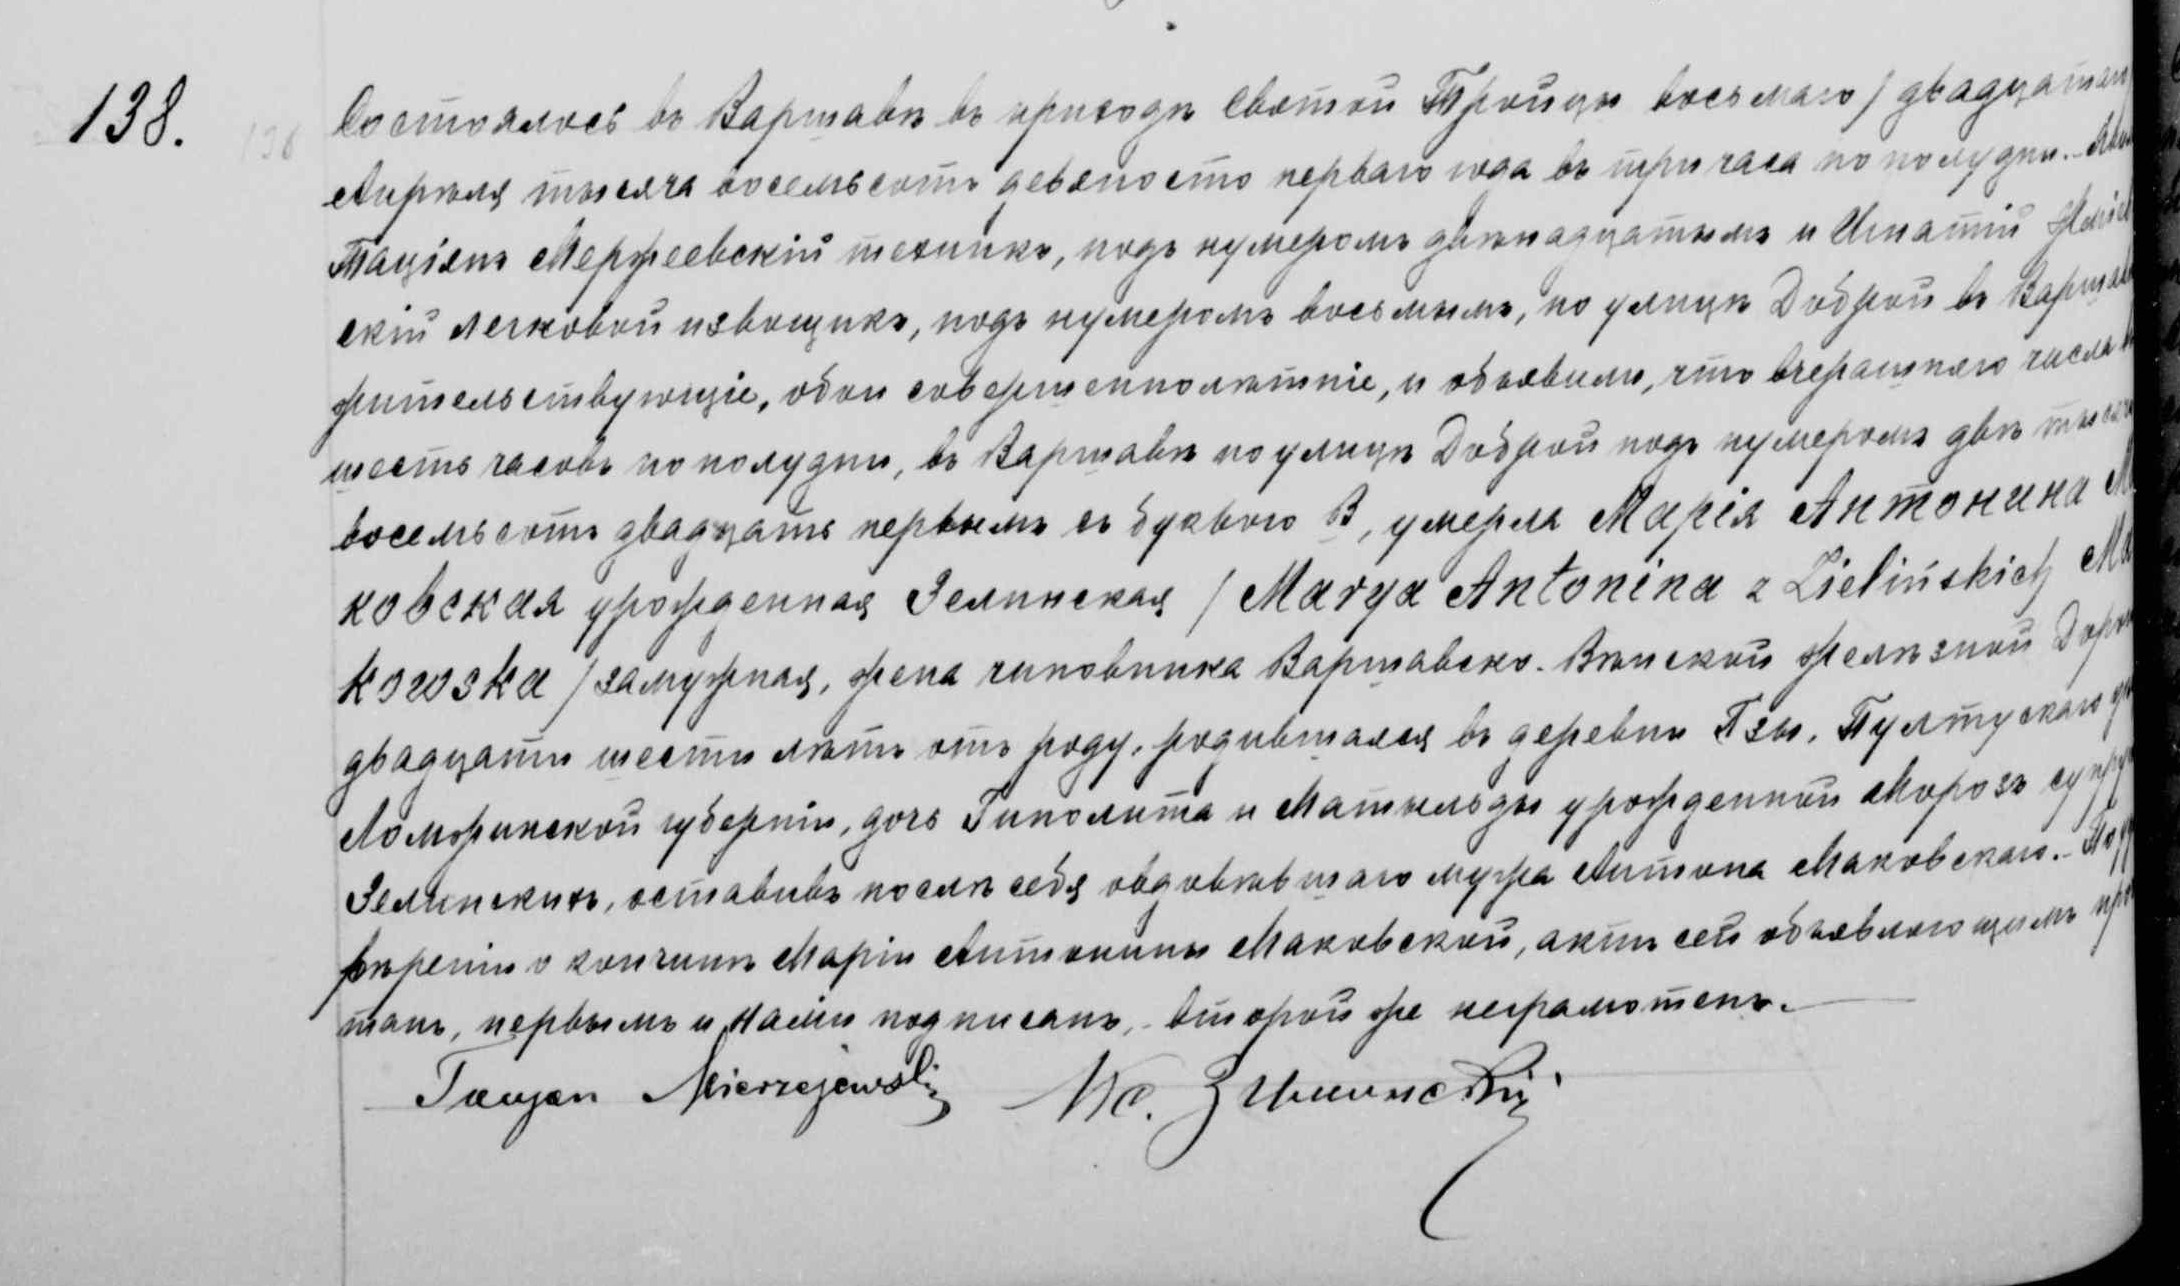 138.
Состоялось въ Варшавѣ въ приходѣ Святой Троицы восьмаго / двадцатаго
Апрѣля тысяча восемьсотъ девяносто перваго года въ три часа по полудни. – Яви
Таціянъ Мержеевскій техникъ, подъ нумеромъ двѣнадцатымъ и Игнатій
скій легковой извощикъ, подъ нумеромъ восьмымъ, по улицѣ Доброй въ Варшав
жительствующіе, обои совершеннолѣтніе, и объявили, что вчерашняго числа въ
шесть часовъ по полудни, въ Варшавѣ по улицѣ Доброй подъ нумеромъ двѣ тысячи
восемьсотъ двадцать первымъ съ буквою В, умерла Марія Антонина Ма
ковская урожденная Зелинская / Marya Antonina z Zielińskich Ma
kowska / замужная, жена чиновника Варшавско-Вѣнской желѣзной Доро
двадцати шести лѣтъ отъ роду, родившаяся въ деревнѣ Гзы, Пултускаго уѣ
Ломжинской губерніи, дочь Гиполита и Матыльды урожденной Морозъ супру
Зелинскихъ, оставивъ послѣ себя овдовѣвшаго мужа Антона Маковскаго. – По у
вѣреніи о кончинѣ Маріи Антонины Маковской, актъ сей объявляющимъ про
танъ, первымъ и нами подписанъ, – второй же неграмотенъ. –
Tacyan Mierzejewski Кс.